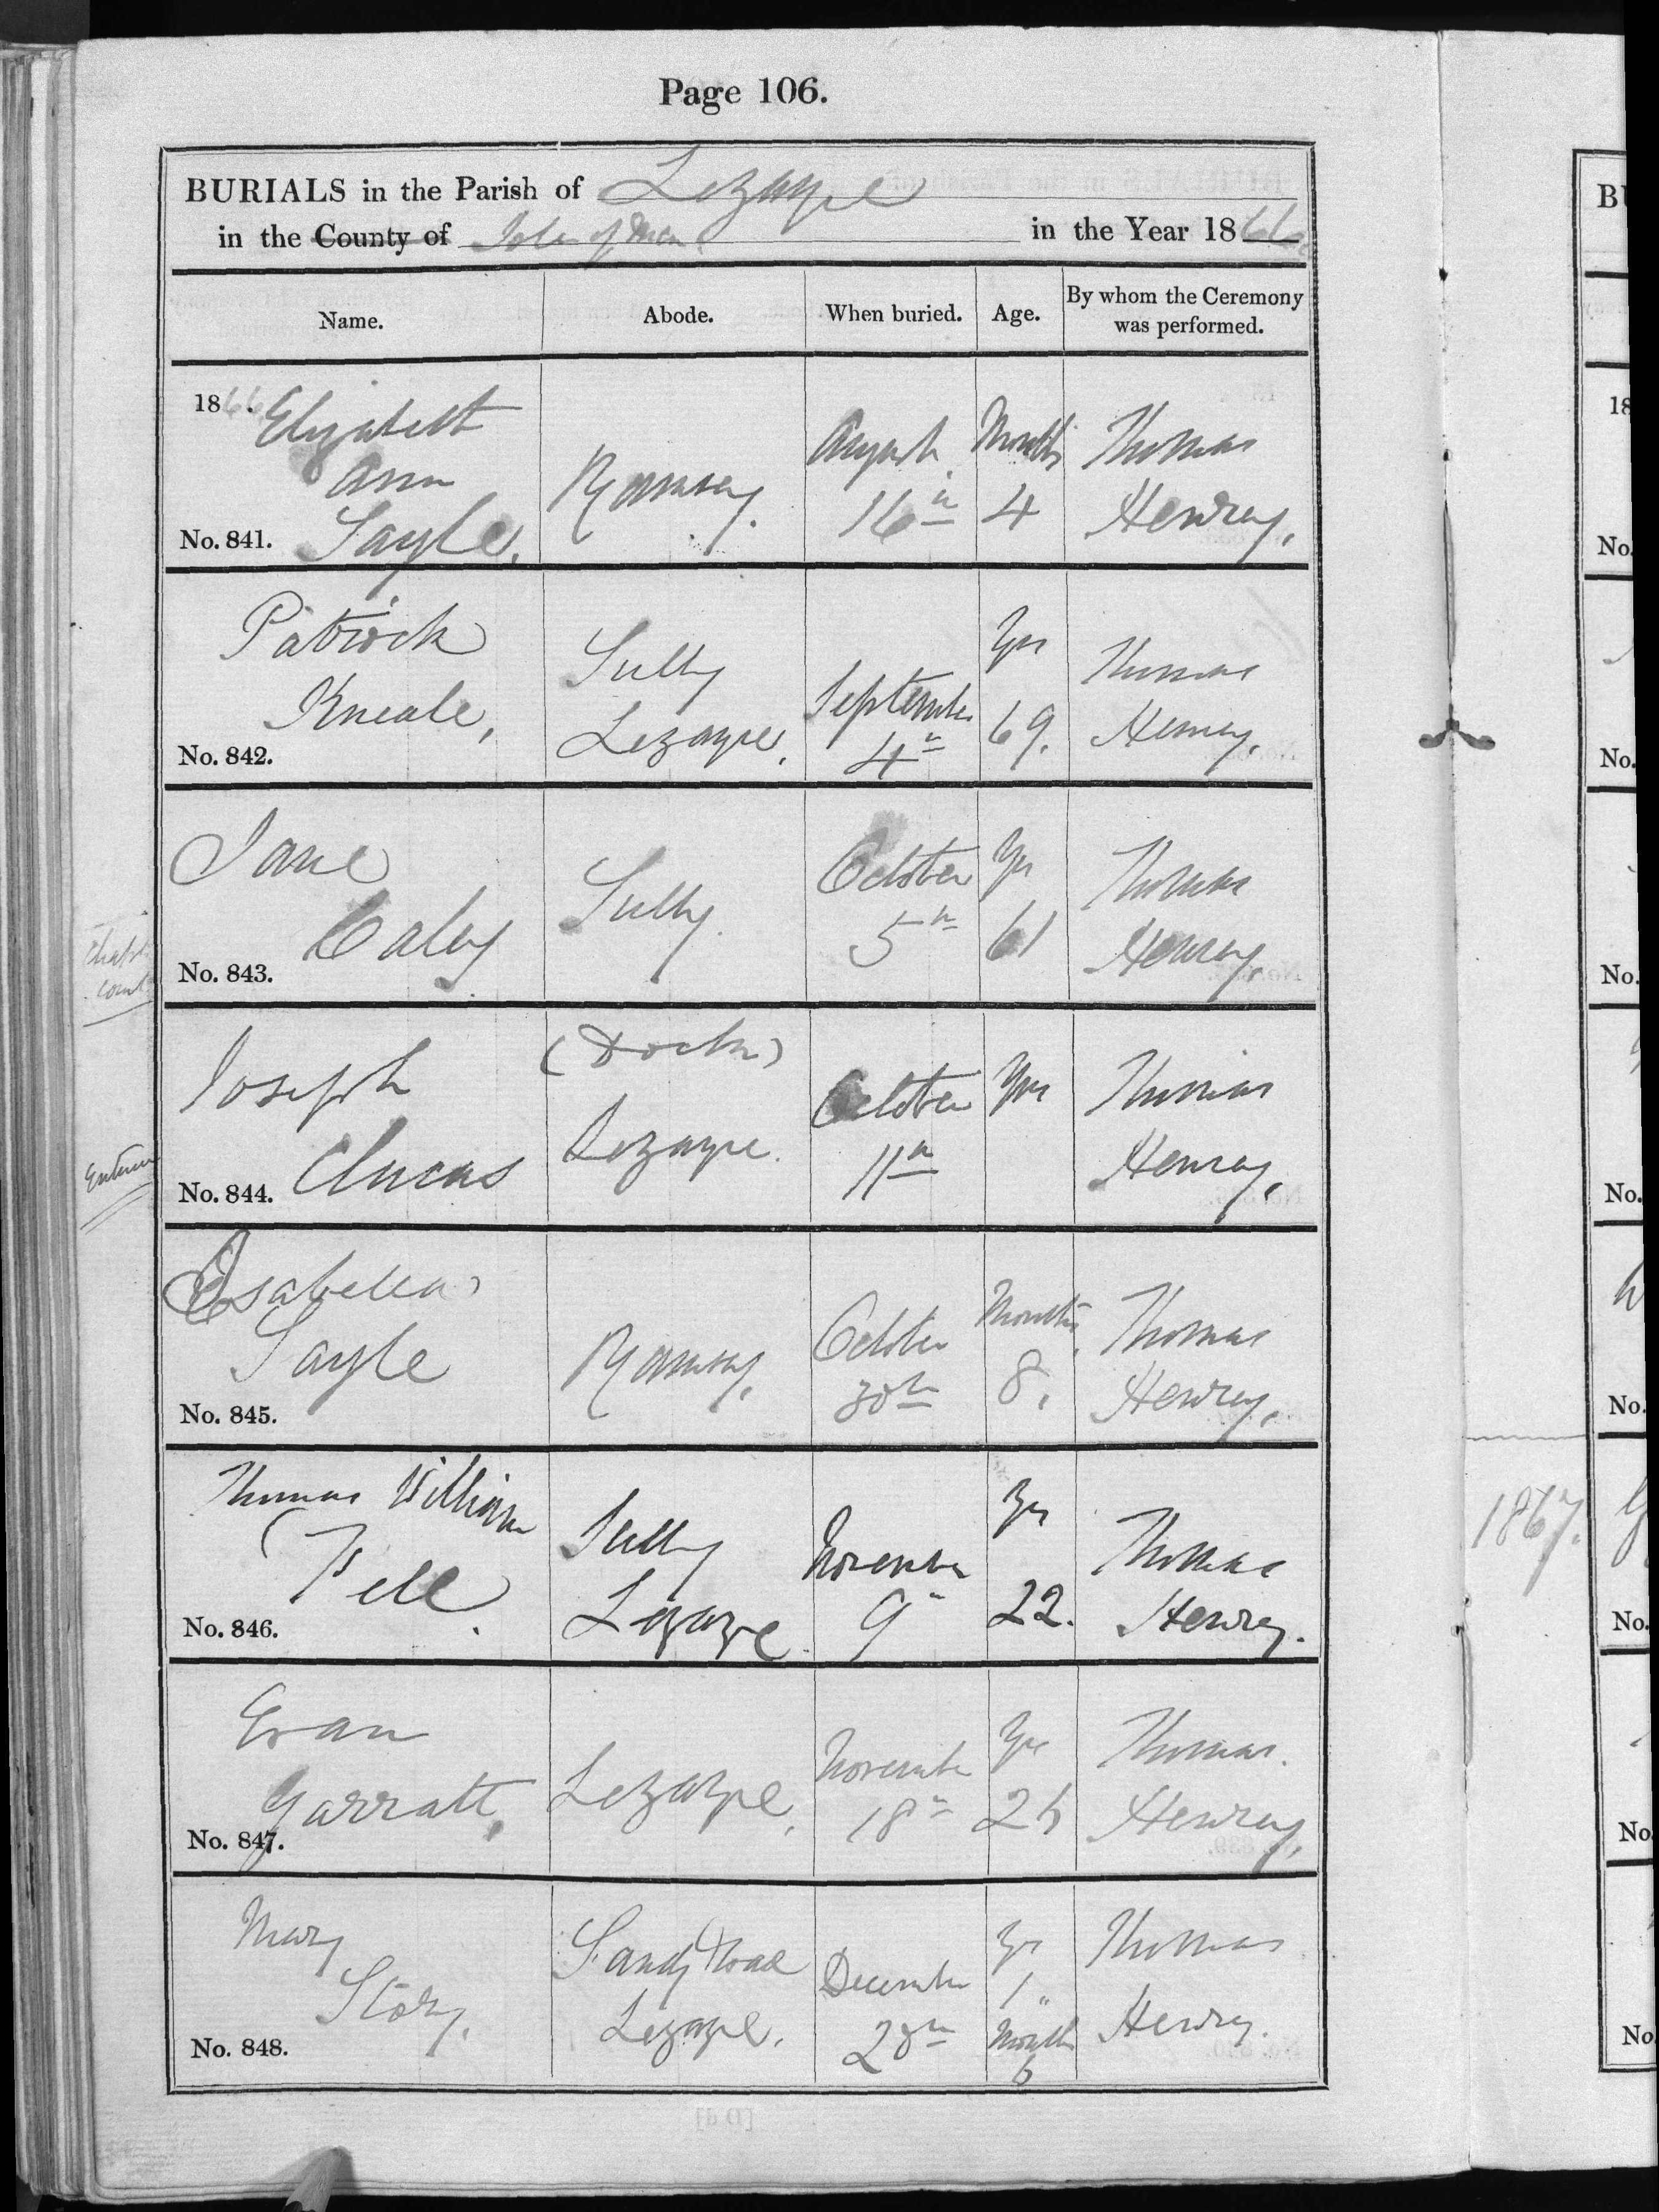 Page 106.
BURIALS in the Parish of Lezayre
in the County of Isle of Man in the Year 1866
Name. Abode. When buried. Age. By whom the Ceremony was performed.
1866. Elizabeth Ann Sayle. Ramsey. August 16th Months 4 Thomas Henry.
No. 841.
Patrick Kneale, Sulby Lezayre. September 4th Yrs 69. Thomas Henry.
No. 842.
Jane Caley Sulby. October 5th Yrs 61 Thomas Henry.
No. 843.
Joseph Clucas Lezayre. October 11th Yrs Thomas Henry.
No. 844.
Isabella Sayle Ramsey. October 30th Months 8. Thomas Henry.
No. 845.
Thomas William Tell. Sulby Lezayre. November 9th Yrs 22. Thomas Henry.
No. 846.
Evan Garratt, Lezayre. November 18th Yrs Thomas Henry.
No. 847.
Mary Story. Sandy Road Lezayre. December 28th Yr 1 Months 6 Thomas Henry.
No. 848.
1867.